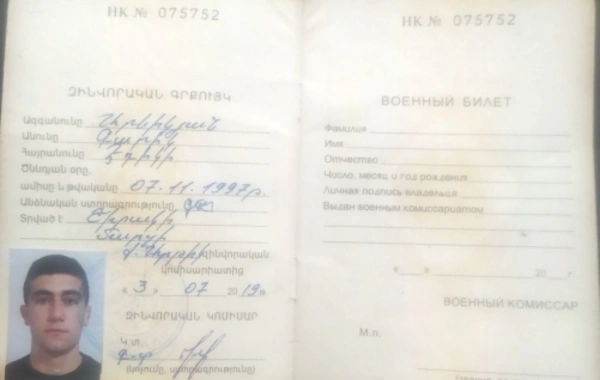 НК № 075752
ԶԻՆՎՈՐԱԿԱՆ ԳՐՔՈՒՅԿ
Ազգանունը
Անունը
Հայրանունը Էդիկի
Ծննդյան օրը,
ամիսը և թվականը 07.11.1997թ.
Անձնական ստորագրությունը
Տրված է Շիրակի
մարզի
զինվորական
կոմիսարիատից
« 3 » 07 2019թ
ԶԻՆՎՈՐԱԿԱՆ ԿՈՄԻՍԱՐ
Կ.Տ.
(կոչումը, ստորագրությունը)
НК № 075752
ВОЕННЫЙ БИЛЕТ
Фамилия
Имя
Отчество
Число, месяц и год рождения
Личная подпись владельца
Выдан военным комиссариатом
« » 20 г.
ВОЕННЫЙ КОМИССАР
М.п.